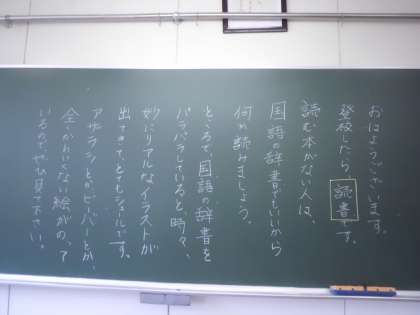 おはようございます。
登校したら 読書 です。
読む本がない人は、
国語の辞書でもいいから
何か読みましょう。
ところで、国語の辞書を
パラパラしていると、時々、
妙にリアルなイラストが
出てきて、とてもシュールです。
アザラシとかビーバーとか、
全くかわいくない絵がのって
いるのでぜひ見て下さい。